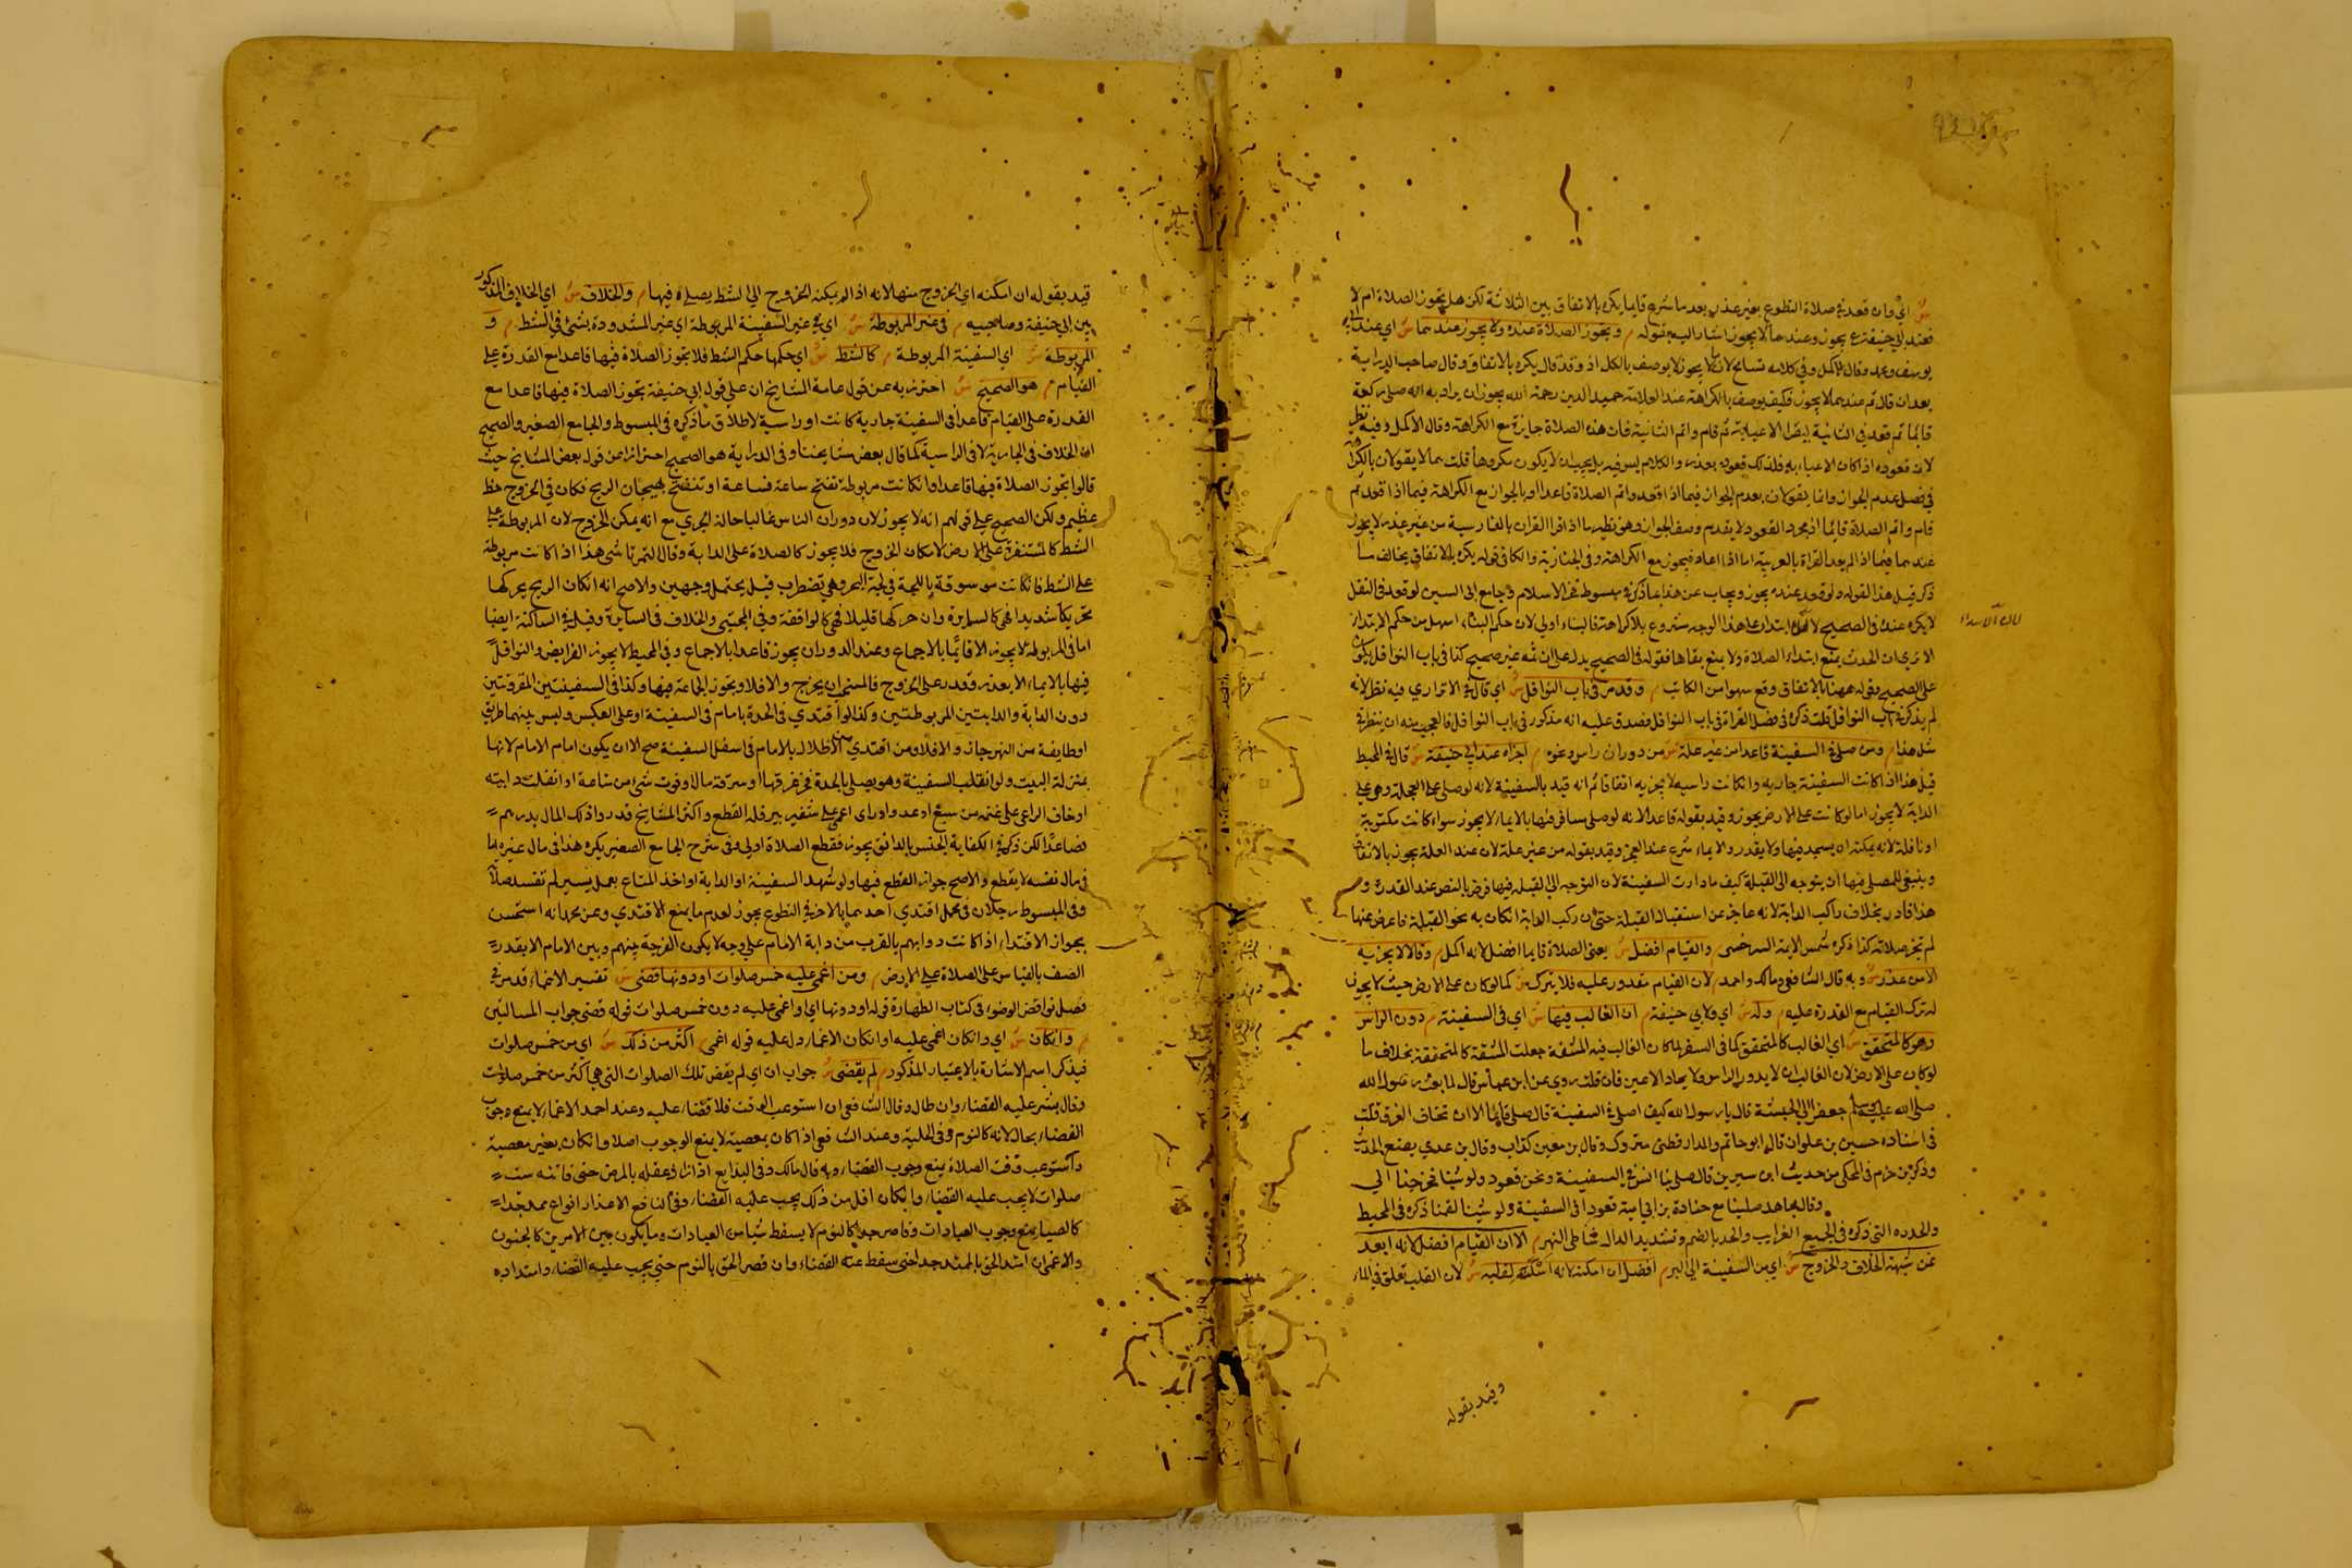 ش اي وان قعد في صلاة التطوع بغير عذر بعد ما شرع قايما يكره بالاتفاق بين الثلاثة لكن هل تجوز الصلاة ام لا
فعند ابي حنيفة رح يجوز وعندهما لا يجوز اشار اليه بقوله م وتجوز الصلاة عنده ولا يجوز عندهما ش اي عند ابي
يوسف ومحمد وقال الاكمل وفي كلامه تسامح لان ما لا يجوز لا يوصف بالكل اذ وقد قال يكره بالاتفاق وقال صاحب الدراية
بعد ان قال ثم عندهما لا يجوز فكيف يوصف بالكراهة عند العلامة حميد الدين رحمة الله يجوز ان يراد به انه صلى ركعة
قائما ثم قعد في الثانية ليقرا لاعيائه ثم قام واتم الثانية فان هذه الصلاة جايزة مع الكراهة وقال الاكمل وفيه نظر
لان قعوده اذا كان الاعياء به فلذلك قعوده بعذر والكلام ليس فيه بل يجب ان لا يكون مكروها قلت هما لا يقولان بالكراهة
في فصل عدم الجواز وانما يقولان بعدم الجواز فيما اذا قعد واتم الصلاة قاعدا او بالجواز مع الكراهة فيما اذا قعد ثم
قام واتم الصلاة قايما اذ مجرد القعود لا يقدم وصف الجواز وهو نظير ما اذا قرا القران بالفارسية من غير عذر لا يجوز
عندهما فيما اذا لم يعد القراة بالعربية اما اذا اعاد فيجوز مع الكراهة وفي الخبازية والكافي قوله يكره بالاتفاق يخالف ما
ذكر قبل هذا القول ولو قعد عنده يجوز ويجاب عن هذا بما ذكر في مبسوط فخر الاسلام وجامع ابي اليسر لو قعد في النفل
لا يكره عنده في الصحيح لان الابتداء على هذا الوجه مشروع بلا كراهة فالبناء اولى لان حكم البناء اسهل من حكم الابتداء
الا ترى ان الحدث يمنع ابتداء الصلاة ولا يمنع بقاها فقوله في الصحيح يدل على ان ثمه غير صحيح كذا في باب النوافل يكون
على الصحيح وقوله ههنا بالاتفاق وقع سهوا من الكاتب م وقد مر في باب النوافل ش اي قال في الاترازي فيه نظر لانه
لم يذكر في باب النوافل قلت ذكره في فصل القراة في باب النوافل فصدق عليه انه مذكور في باب النوافل فالعجب منه ان ينظر في
مثل هذا م ومن صلى في السفينة قاعدا من غير علة ش من دوران راس ونحوه م اجزاه عند ابي حنيفة ش قال في المحيط
قيل هذا اذا كانت السفينة جارية وان كانت راسية لا يجزيه اتفاقا ثم انه قيد بالسفينة لانه لو صلى على العجلة وهي على
الدابة لا يجوز اما لو كانت على الارض يجوز وقيد بقوله قاعدا لانه لو صلى مسافر فيها بالايماء لا يجوز سواء كانت مكتوبة
او نافلة لانه يمكنه ان يسجد فيها ولا يقدر والايماء شرع عند العجز وقيد بقوله من غير علة لان عند العلة يجوز بالاتفاق
وينبغي للمصلي فيها ان يتوجه الى القبلة كيف ما دارت السفينة لان التوجه الى القبلة فيها فرض بالنص عند القدرة و
هذا قادر بخلاف راكب الدابة لانه عاجز عن استقبال القبلة حتى ان ركب الدابة ان كان به نحو القبلة فاعرض عنها
لم تجز صلاته كذا ذكره شمس الايمة السرخسي م والقيام افضل ش يعني الصلاة قايما افضل لانه اكمل م وقالا لا يجزيه
الا من عذر ش وبه قال الشافعي ومالك واحمد م لان القيام مقدور عليه فلا يترك ش كما لو كان على الارض حيث لا يجوز
له ترك القيام مع القدرة عليه م وله ش اي ولابي حنيفة م ان الغالب فيها ش اي في السفينة م دوران الراس
وهو كالمتحقق ش اي الغالب كالمتحقق كما في السفر لما كان الغالب فيه المشقة جعلت المشقة كالمتحققة بخلاف ما
لو كان على الارض لان الغالب ان لا يدور الراس ولا يعاد الاعين فان قلت روي عن ابن عباس قال لما بعث رسول الله
صلى الله عليه وسلم جعفر الى الحبشة قال يا رسول الله كيف اصلي في السفينة قال صل قايما الا ان تخاف الغرق قلت
في اسناده حسين بن علوان قال ابو حاتم والدارقطني متروك وقال بن معين كذاب وقال بن عدي يضع الحديث
وذكر بن حزم في المحلى من حديث ابن سيرين قال صلى بنا انس في السفينة ونحن قعود ولو شينا لخرجنا الى
وقال مجاهد صلينا مع جنادة بن ابي امية قعودا في السفينة ولو شينا لقمنا ذكره في المحيط
والجدده التي ذكره في الجميع الغرايب والجد بالضم وتشديد الدال شاطي النهر م الا ان القيام افضل لانه ابعد
عن شبهة الخلاف والخروج ش اي من السفينة الى البر م افضل ان امكنه لانه اسكن لقلبه ش لان القلب تعلق في الماء
وقيد بقوله
قيد بقوله ان امكنه اي الخروج منها لانه اذا لم يمكنه الخروج الى الشط يصلي فيها م والخلاف ش اي الخلاف المذكور
بين ابي حنيفة وصاحبيه م في غير المربوطة ش اي في غير السفينة المربوطة اي غير المشدودة بشئ في الشط م و
المربوطة ش اي السفينة المربوطة م كالشط ش اي حكمها حكم الشط فلا تجوز الصلاة فيها قاعدا مع القدرة على
القيام م هو الصحيح ش احترز به عن قول عامة المشايخ ان على قول ابي حنيفة تجوز الصلاة فيها قاعدا مع
القدرة على القيام قاعدا في السفينة جارية كانت او راسية لاطلاق ما ذكره في المبسوط والجامع الصغير والصحيح
ان الخلاف في الجارية لا في الراسية كما قال بعض مشايخنا وفي الدراية هو الصحيح احترازا من قول بعض المشايخ حيث
قالوا تجوز الصلاة فيها قاعدا وان كانت مربوطة تفتح ساعة فساعة او تنفتح بهيجان الريح فكان في الخروج حظ
عظيم ولكن الصحيح على قولهم انه لا يجوز لان دوران الناس غالبا حالة الجري مع انه يمكن الخروج لان المربوطة على
الشط كالمستقرة على الارض لامكان الخروج فلا يجوز كالصلاة على الدابة وقال التمرتاشي هذا اذا كانت مربوطة
على الشط فان كانت موسوقة باللجة في لجة البحر وهي تضطرب قيل يحتمل وجهين والاصح انه ان كان الريح يحركها
تحريكا شديدا فهي كالسايرة وان حركها قليلا فهي كالواقفة وفي المجتبى والخلاف في السايرة وقيل في الساكنة ايضا
اما في المربوطة لا يجوز الا قائما بالاجماع وعند الدوران يجوز قاعدا بالاجماع وفي المحيط لا يجوز الفرايض والنوافل
فيها بالايماء الا بعذر وقدر على الخروج فالمستحب ان يخرج والا فلا وتجوز الجماعة فيها وكذا في السفينتين المقرونتين
دون الدابة والدابتين المربوطتين وكذا لو اقتدى في الجدة بامام في السفينة او على العكس وليس بينهما طريق
او طايفة من النهر جاز والا فلا ومن اقتدى من الاظلال بالامام في اسفل السفينة صح الا ان يكون امام الامام لانها
بمنزلة البيت ولو انقلب السفينة وهو يصلي بالجدة فخر غرقها او سرقة ماله او فوت شئ من متاعه او انفلت دابته
او خاف الراعي على غنمه من سبع او عدو او راى اعمى على شفير بير فله القطع واكثر المشايخ قدروا ذلك المال بدرهم
فصاعدا لكن ذكر في الكفاية الحبس بالدانق يجوز فقطع الصلاة اولى وفي شرح الجامع الصغير يكره هذا في مال غيره اما
في مال نفسه لا يقطع والاصح جواز القطع فيها ولو شهد السفينة او الدابة او اخذ المتاع بعمل يسير لم تفسد صلاته
وفي المبسوط رجلان في محمل اقتدى احدهما بالاخر في التطوع يجوز لعدم ما يمنع الاقتدي وعن محمد انه استحسن
بجواز الاقتداء اذا كانت دوابهم بالقرب من دابة الامام على وجه لا يكون الفرجة بينهم وبين الامام الا بقدر
الصف بالقياس على الصلاة على الارض م ومن اغمي عليه خمس صلوات او دونها قضى ش تفسير الاغماء قد مر في
فصل نواقض الوضوء في كتاب الطهارة قوله او دونها اي او اغمي عليه دون خمس صلوات قوله قضى جواب المسالتين
م وان كان ش اي وان كان اغمي عليه او ان كان الاغماء دل عليه قوله اغمي م اكثر من ذلك ش اي من خمس صلوات
فيذكر اسم الاشارة بالاعتبار المذكور م لم يقضى ش جواب ان اي لم يقض تلك الصلوات التي هي اكثر من خمس صلوات
وقال بشر عليه القضاء وان طال وقال الشافعي ان استوعب الوقت فلا قضاء عليه وعند احمد الاغماء لا يمنع وجوب
القضاء بحال لانه كالنوم وفي الحلية وعند الشافعي اذا كان بمعصية لا يمنع الوجوب اصلا وان كان بغير معصية
واستوعب وقت الصلاة يمنع وجوب القضاء وبه قال مالك وفي البدايع اذا زال عقله بالمرض حتى فاتته ست
صلوات لا يجب عليه القضاء وان كان اقل من ذلك يجب عليه القضاء وفي النافع الاعذار انواع ممتد جدا
كالصبا يمنع وجوب العبادات وقاصر جدا كالنوم لا يسقط شيا من العبادات وما يكون بين الامرين كالجنون
والاغماء ان امتد الحق بالممتد جدا حتى سقط عنه القضاء وان قصر الحق بالنوم حتى يجب عليه القضاء وامتداده